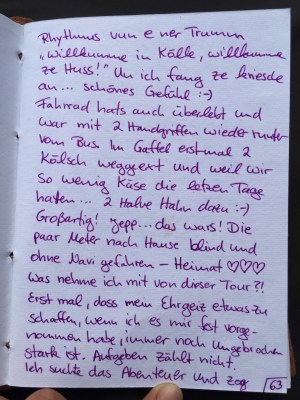 Rhythmus vun e ner Trumm
"Willkumme in Kölle, willkumme
ze Huss!" Un ich fang ze kriesche
an... schönes Gefühl :-)
Fahrrad hats auch überlebt und
war mit 2 Handgriffen wieder runter
vom Bus. Im Gaffel erstmal 2
Kölsch weggext und weil wir
so wenig Käse die letzen Tage
hatten... 2 Halve Hahn dazu :-)
Großartig! Jepp... das wars! Die
paar Meter nach Hause blind und
ohne Navi gefahren – Heimat ♡♡♡
Was nehme ich mit von dieser Tour?!
Erst mal, dass mein Ehrgeiz etwas zu
schaffen, wenn ich es mir fest vorge-
nommen habe, immer noch ungebrochen
stark ist. Aufgeben zählt nicht.
Ich suchte das Abenteuer und zog
63